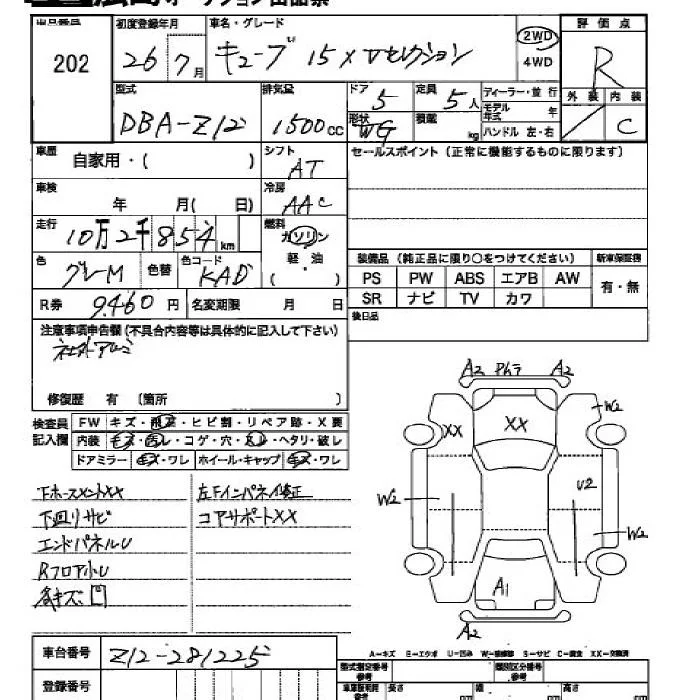 202
初度登録年月
26 7月
車名・グレード
キューブ 15X Vセレクション
2WD
4WD
評価点
R
外装 内装
C
型式
DBA-Z12
排気量
1500cc
ドア
5
定員
5人
形状
WG
積載
kg
ディーラー・並行
モデル年式 年
ハンドル 左・右
車歴
自家用・( )
シフト
AT
セールスポイント(正常に機能するものに限ります)
車検
年 月( 日)
冷房
AAC
走行
10万2千854km
燃料
ガソリン
軽・油
( )
色
グレーM
色替
色コード
KAD
装備品(純正品に限り○をつけてください)
新車保証書
PS PW ABS エアB AW
有・無
SR ナビ TV カワ
R券 9460円
名変期限 月 日
後日品
注意事項申告欄(不具合内容等は具体的に記入して下さい)
社外アルミ
修復歴 有(箇所 )
検査員記入欄
FW キズ・飛石・ヒビ割・リペア跡・X要
内装 キズ・汚レ・コゲ・穴・スレ・ヘタリ・破レ
ドアミラー キズ・ワレ ホイール・キャップ キズ・ワレ
下回リサビ
エンドパネルU
Rフロア小U
各キズ凹
左Fインパネイ修正
コアサポートXX
A2 A2
XX XX W2
W2 U2
W2
A1
A2
A-キズ E-エクボ U-凹み W-補修跡 S-サビ C-腐食 XX-交換済
車台番号 Z12-281225
登録番号
型式指定番号 参考
類別区分番号 参考
長さ
幅
高さ